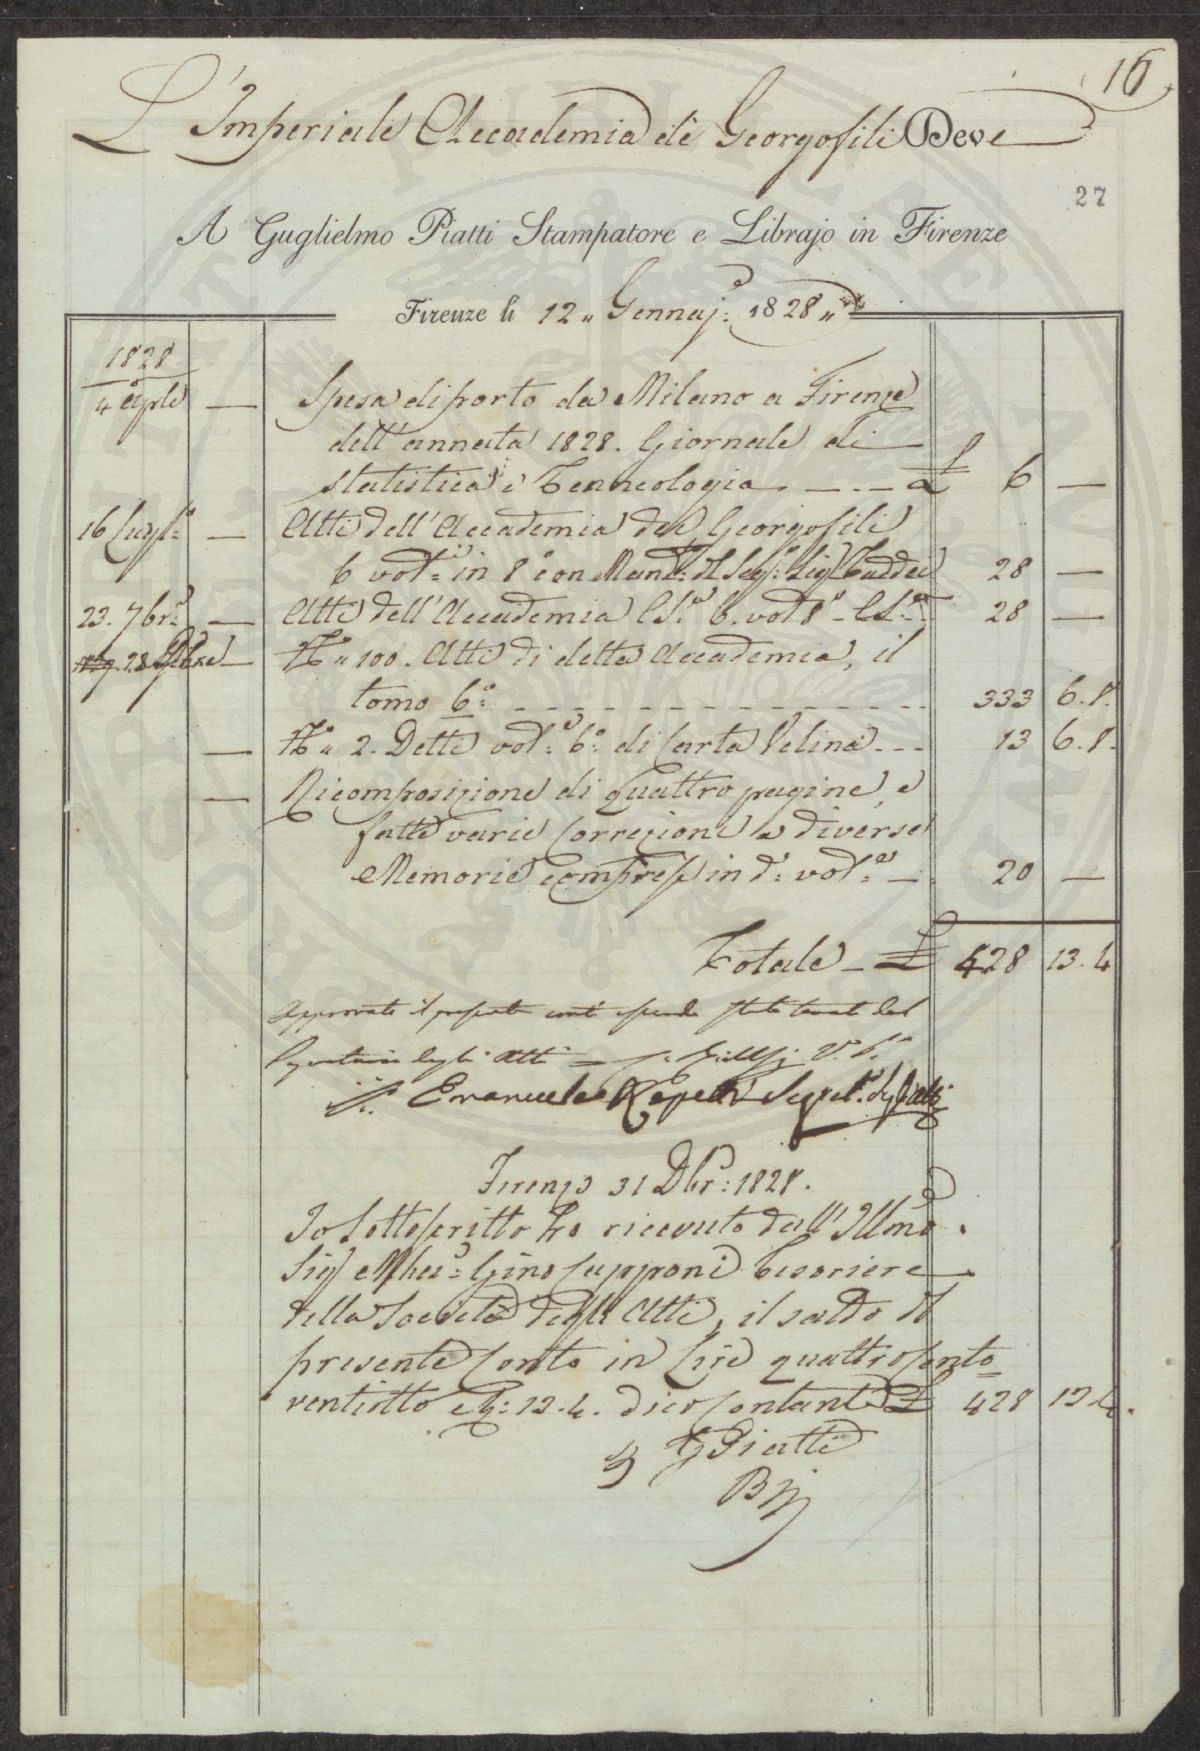 16
L'Imperiale Accademia de Georgofili Deve
27
A Guglielmo Piatti Stampatore e Librajo in Firenze
Firenze li 12 Gennaj.º 1828
1828
4 aprile — Spesa di porto da Milano a Firenze
dell'annata 1828. Giornale di
statistica e Tecneologia - - - £ 6 —
16 Lugl.º — Atti dell'Accademia dei Georgofili
6 vol.i in 8.º con Mand.º del Seg.º Sig.r Taddei 28 —
23. 7bre — Atti dell'Accademia 6. vol 8.º 28 —
28 — N.º 100. Atti di detta Accademia, il
tomo 6.º - - - 333 6.8.
— N.º 2. Detti vol.e 6.º di Carta Velina - - - 13 6.8.
— Ricomposizione di Quattro pagine, e
fatte varie Correzioni a diverse
Memorie compresi in d.º vol.e — 20 —
Totale - £ 428 13.4
Approvato il presente conto essendo stato
Segretario degli Atti
Emanuele Repetti Segret.º degli Atti
Firenze 31 Dbr: 1828.
Io Sottoscritto ho ricevuto dall'Illmo
Sig.r March.e Gino Capponi Tesoriere
della Società degli Atti, il saldo del
presente Conto in Lire quattrocento
ventiotto e 13.4. dico Contanti £ 428 13.4.
G Piatti